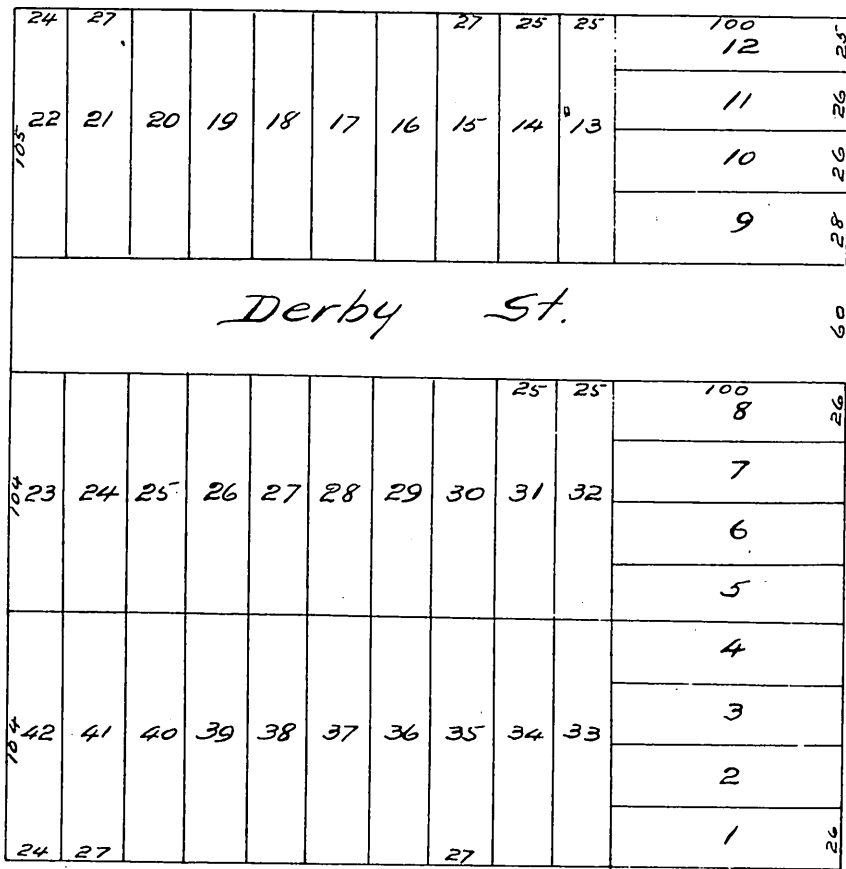 24 27 27 25 25 100 25
12
105 22 21 20 19 18 17 16 15 14 13 11 26
10 26
9 28
Derby St. 60
25 25 100 26
8
104 23 24 25 26 27 28 29 30 31 32 7
6
5
4
104 42 41 40 39 38 37 36 35 34 33 3
2
1 26
24 27 27